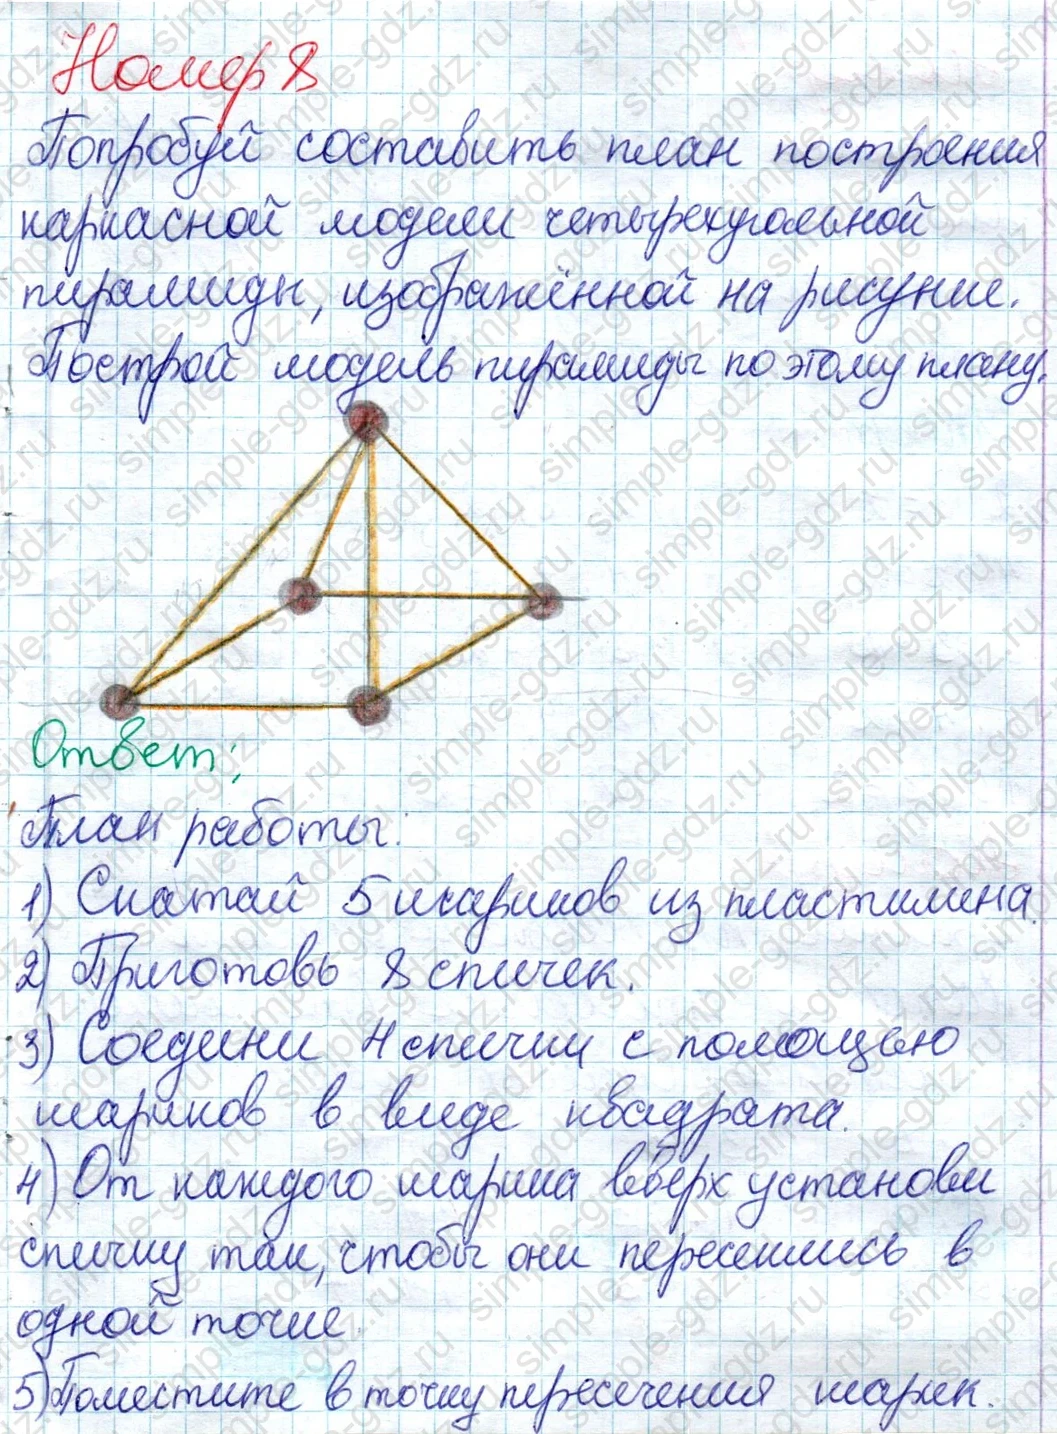 Номер 8
Попробуй составить план построения
каркасной модели четырехугольной
пирамиды, изображённой на рисунке.
Построй модель пирамиды по этому плану.
Ответ:
План работы:
1) Скатай 5 шариков из пластилина.
2) Приготовь 8 спичек.
3) Соедини 4 спички с помощью
шариков в виде квадрата.
4) От каждого шарика вверх установи
спичку так, чтобы они пересеклись в
одной точке.
5) Поместите в точку пересечения шарик.
simple-gdz.ru